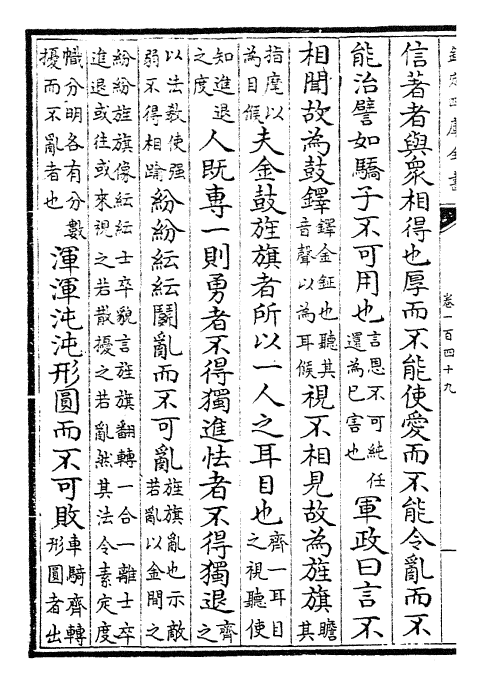 欽定四庫全書
卷一百四十九
信著者與衆相得也厚而不能使愛而不能令亂而不
能治譬如驕子不可用也言恩不可純任還為已害也軍政曰言不
相聞故為鼓鐸鐸金鉦也聽其音聲以為耳候視不相見故為旌旗瞻其
指麾以為目候夫金鼓旌旗者所以一人之耳目也齊一耳目之視聽使
知進退之度人既專一則勇者不得獨進怯者不得獨退齊之
以法教使强弱不得相踰紛紛紜紜鬭亂而不可亂旌旗亂也示敵若亂以金間之
紛紛旌旗像紜紜士卒貌言旌旗翻轉一合一離士卒進退或往或來視之若散擾之若亂然其法令素定度
幟分明各有分數擾而不亂者也渾渾沌沌形圓而不可敗車騎齊轉形圓者出